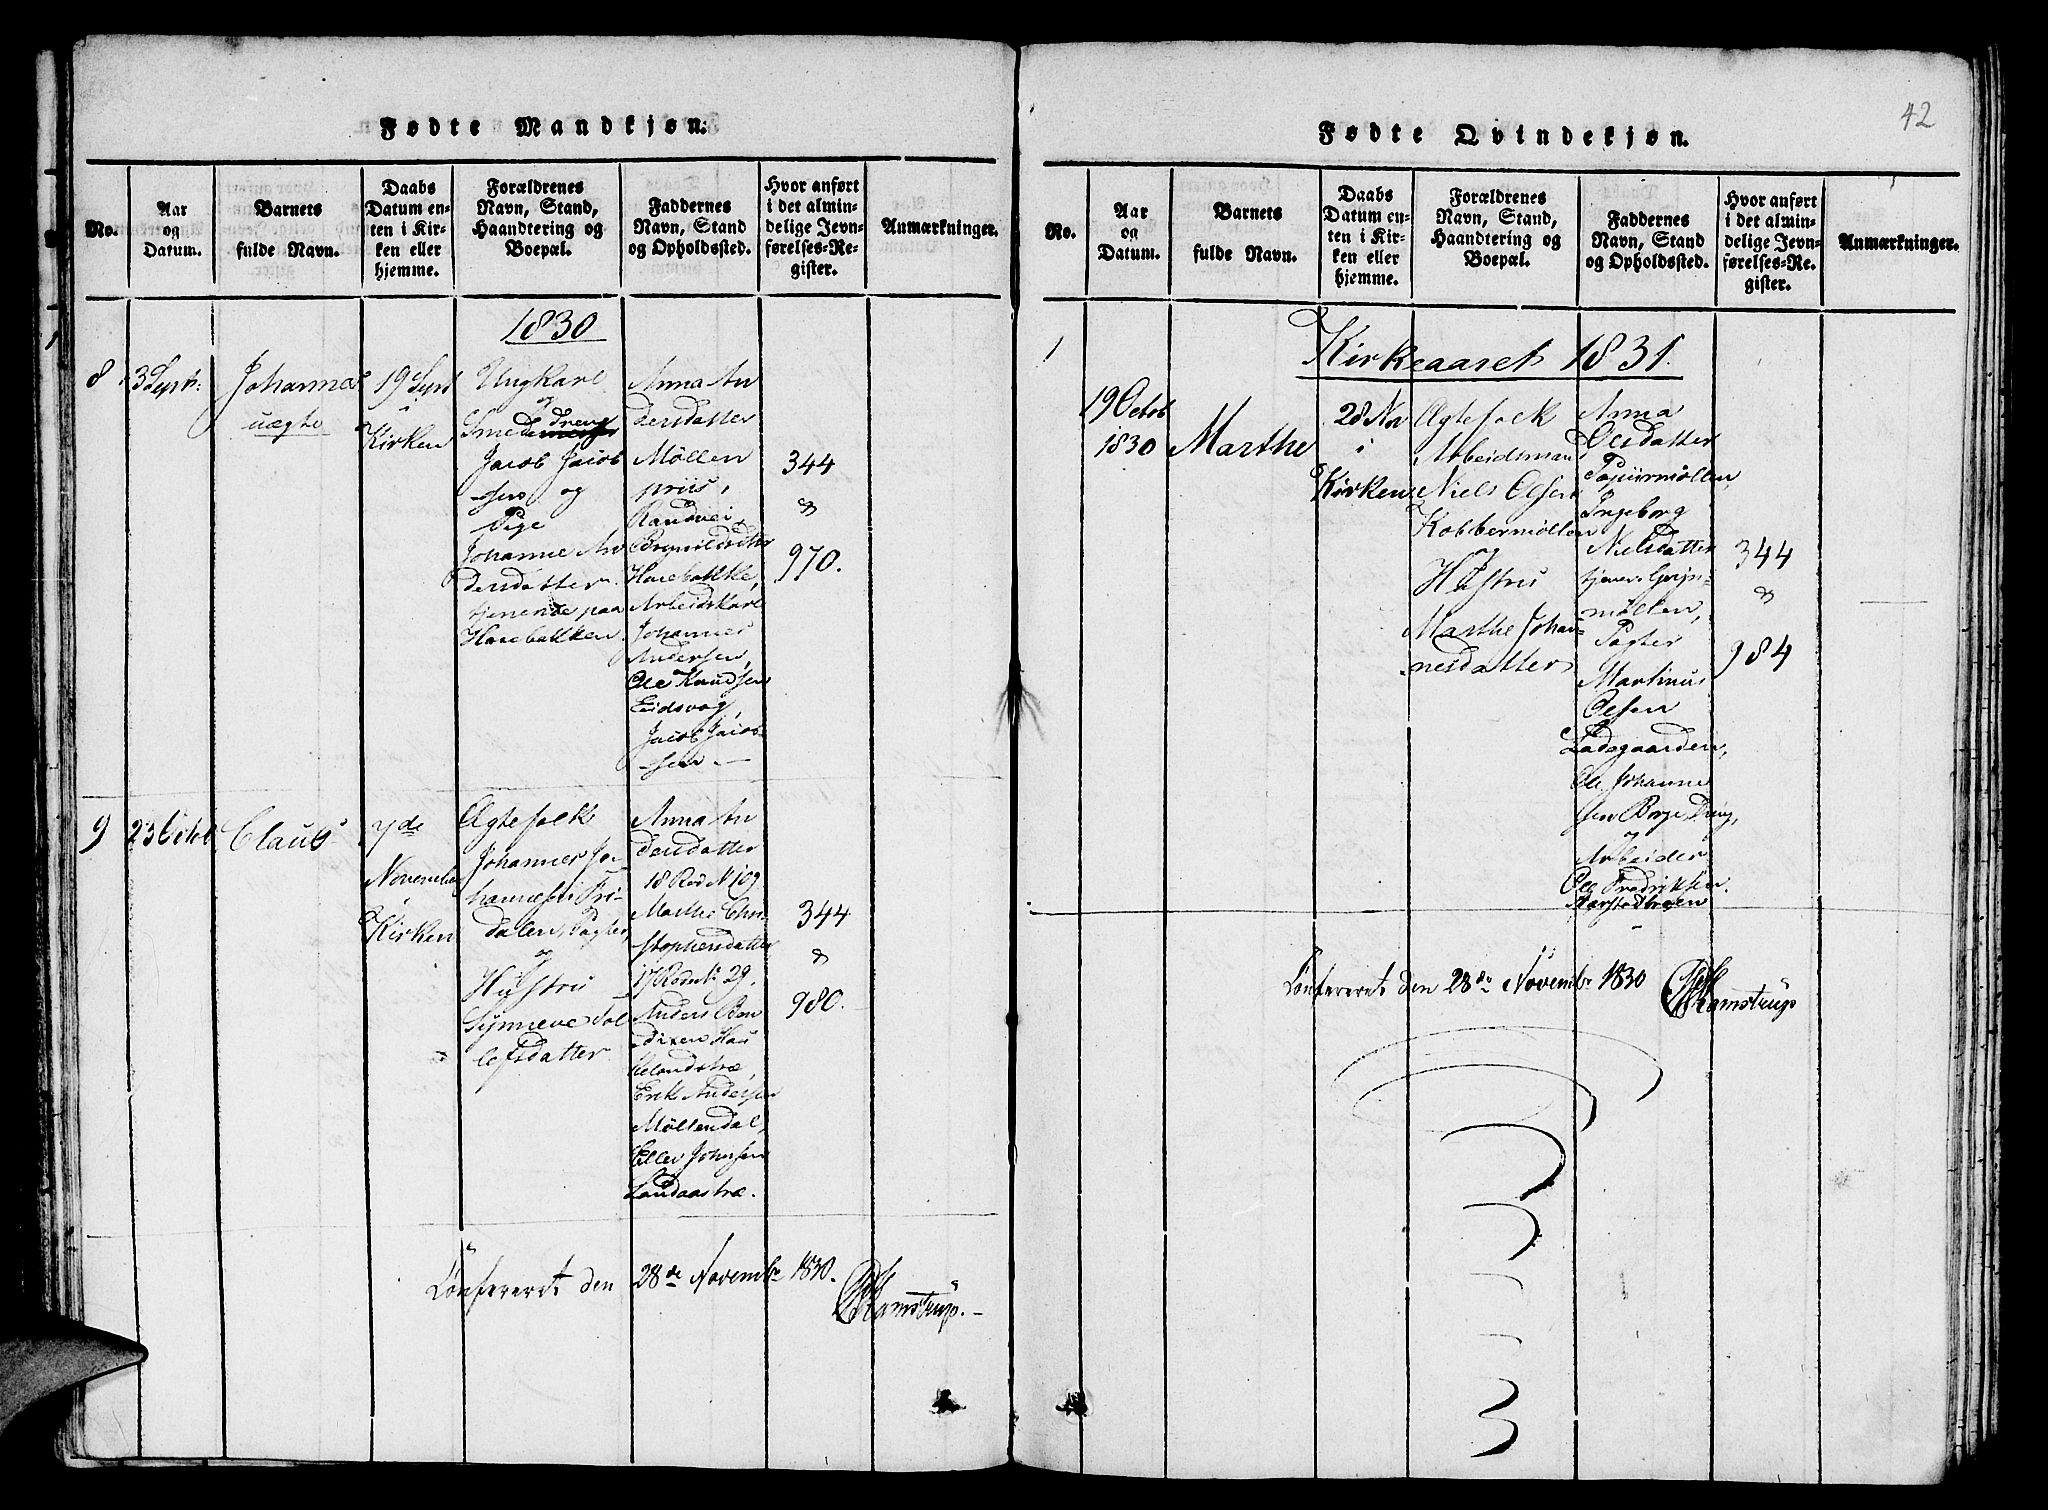 Fødte Mandkjøn.
No.
Aar
og
Datum.
Barnets
fulde Navn.
Daabs
Datum en-
ten i Kir-
ken eller
hjemme.
Forældrenes
Navn, Stand,
Haandtering og
Boepæl.
Faddernes
Navn, Stand
og Opholdssted.
Hvor anført
i det almin-
delige Jevn-
førelses-Re-
gister.
Anmærkninger.
1830
8
3 Sept:
Johannes
uægte
19 Sept
i
Kirken
Ungkarl
og
Smede dreng
Jacob Jacob
sen og
Pige
Johanne An
dersdatter
tjenende paa
Harebakken
Anna An
dersdatter
Møllen
priis,
Randvei
Harebakke,
Arbeidskarl
Johannes
Andersen,
Ole Knudsen
Eidsvog,
Jacob Jacob
sen.—
344
&
970.
9
23 Octob
Claus
7de
November
i
Kirken
Ægtefolk
Johannes Jo-
hannessen Fri-
dalen, Pagter,
og
Hustru
Synneve Tol
lefsdatter
Anna An
dersdatter
18 Rod N 109
Marthe Chri-
stophersdatter
17 Rode No 29.
Anders Ben
dixen Hau
kelandstræ,
Erik Andersen
Møllendal,
Eller Johnsen
Landaastræ.
344
&
980.
Confereret den 28de Novembr 1830.
Ramstrup.
42
Fødte Qvindekjøn.
No.
Aar
og
Datum.
Barnets
fulde Navn.
Daabs
Datum en-
ten i Kir-
ken eller
hjemme.
Forældrenes
Navn, Stand,
Haandtering og
Boepæl.
Faddernes
Navn, Stand
og Opholdssted.
Hvor anført
i det almin-
delige Jevn-
førelses-Re-
gister.
Anmærkninger.
Kirkeaaret 1831.
1
19 Octob
1830
Marthe
28 Nov
i
Kirken
Ægtefolk
Arbeidsmand
Niels Olsen
Kobbermøllen
og
Hustru
Marthe Johan-
nesdatter
Anna
Olsdatter
Papiirmøllen,
Ingeborg
Nielsdatter
tjener Gryn-
møllen,
Pagter
Martinus
Olsen
Ladegaarden,
Ole Johanne
sen Borge, Dreng,
og
Arbeider
Ole Fredriksen
Aarstadbroen
344
&
984
Confereret den 28de Novembr 1830
Ramstrup